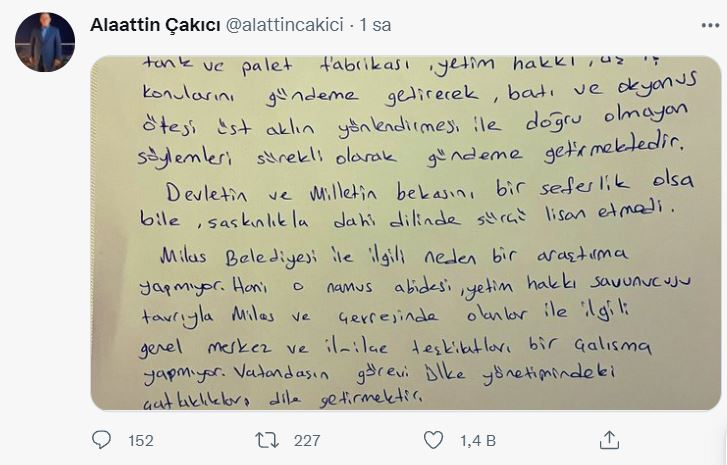 Alaattin Çakıcı @alattincakici · 1 sa
tank ve palet fabrikası, yetim hakkı,
konularını gündeme getirecek, batı ve okyanus
ötesi üst aklın yönlendirmesi ile doğru olmayan
söylemleri sürekli olarak gündeme getirmektedir.
Devletin ve Milletin bekasını bir seferlik olsa
bile, şaşkınlıkla dahi dilinde sürçü lisan etmedi.
Milas Belediyesi ile ilgili neden bir araştırma
yapmıyor. Hani o namus abidesi, yetim hakkı savunucusu
tavrıyla Milas ve çevresinde olanlar ile ilgili
genel merkez ve il-ilçe teşkilatları bir çalışma
yapmıyor. Vatandaşın görevi Ülke yönetimindeki
dile getirmektir.
152 227 1,4 B